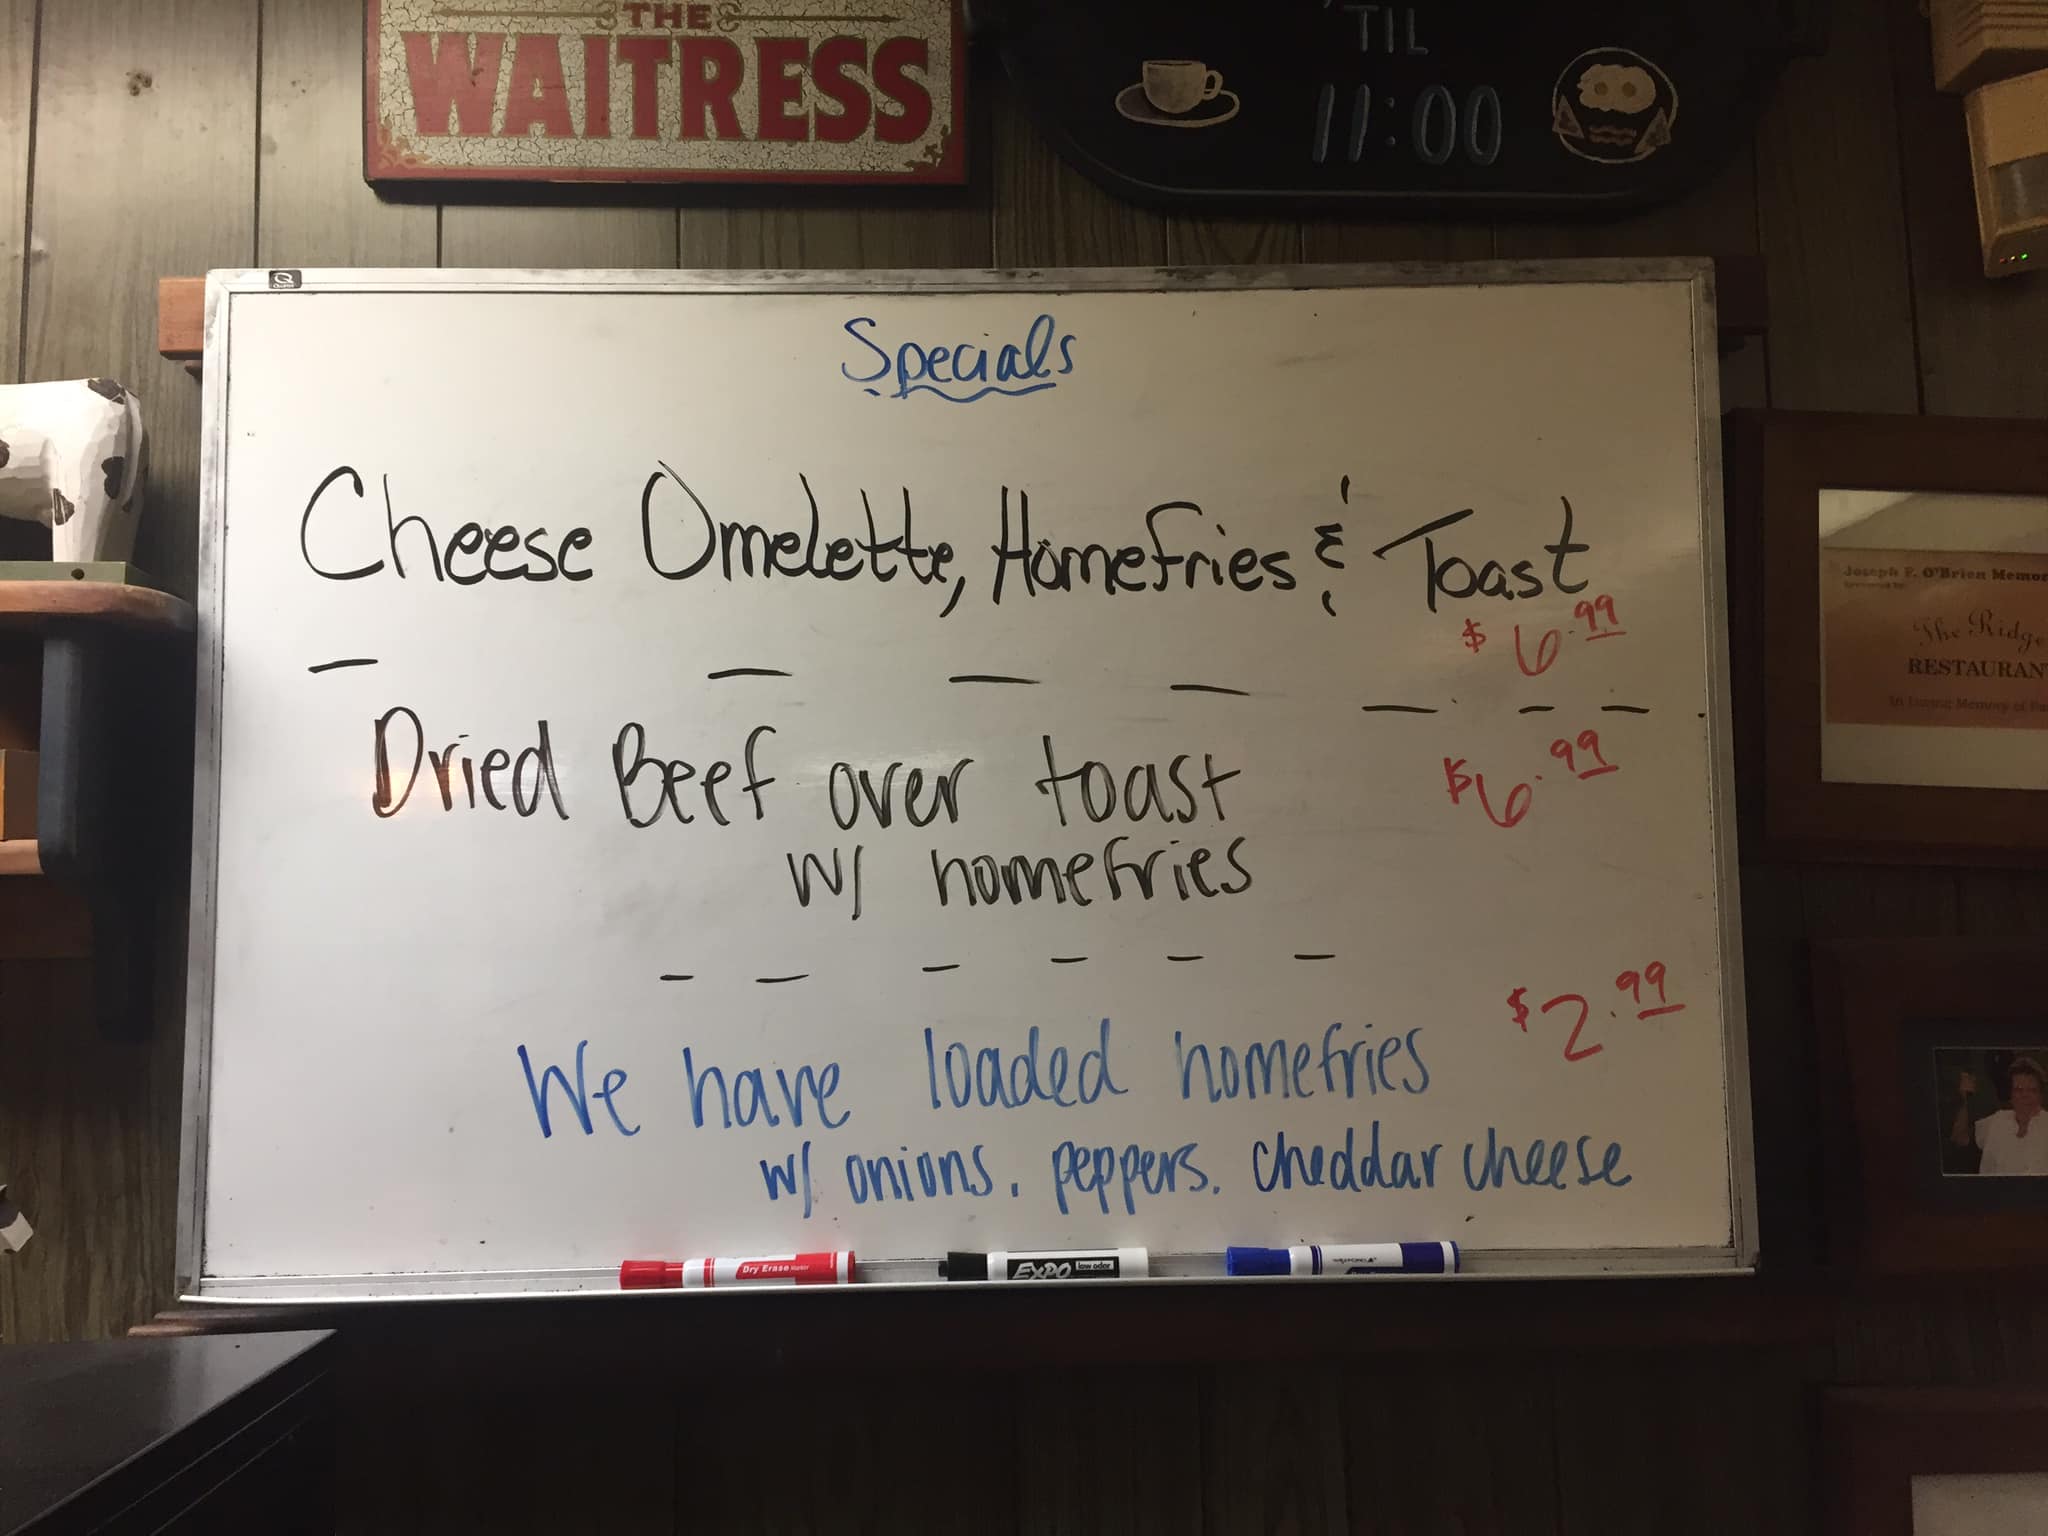 THE
WAITRESS
'TIL
11:00
Specials
Cheese Omelette, Homefries & Toast
$6.99
Dried Beef over toast $6.99
w/ homefries
We have loaded homefries $2.99
w/ onions. peppers. cheddar cheese
Dry Erase Marker
EXPO low odor
Joseph F. O'Brien Memor
The Ridge
RESTAURAN
In Loving Memory of